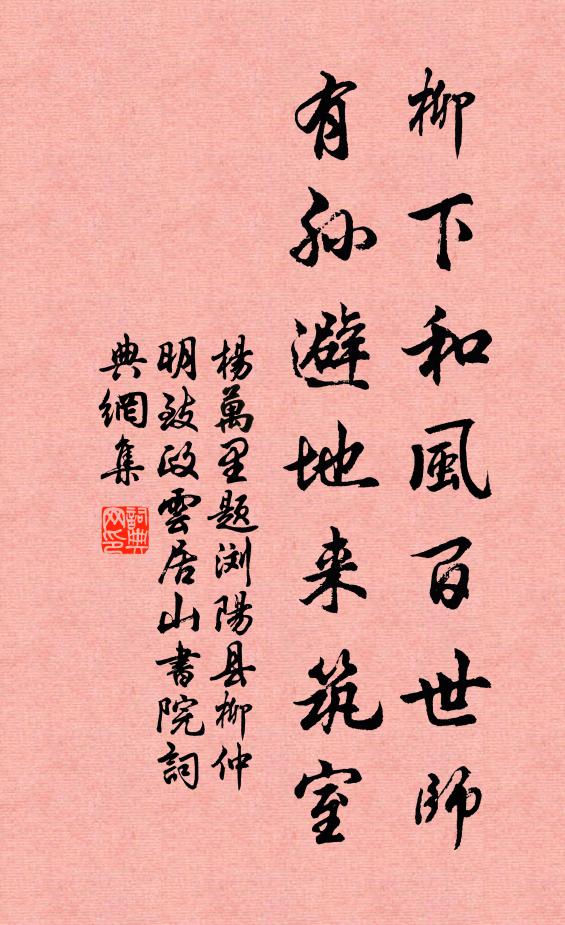 柳下和風百世師
有孙避地来筑室
楊萬里题浏陽县柳仲
明致政雲居山書院詞
典網集
詞典
网印